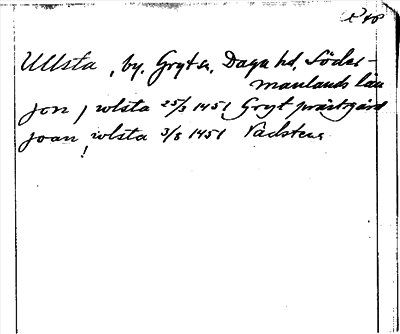 Ullsta, by, Gryt sn, Daga hd, Söder-
manlands län
jon j wlsta 25/3 1451 Gryt prästgård
joan j wlsta 3/8 1451 Vadstena